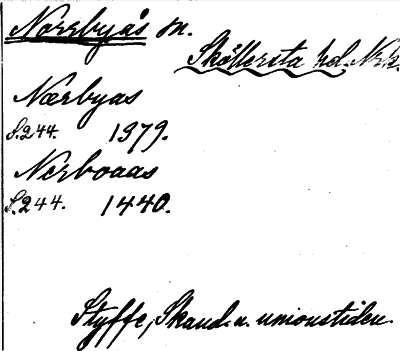 Norrbyås sn.
Sköllersta hd. Nrk.
Nærbyas
S.244. 1379.
Nerboaas
S.244. 1440.
Styffe, Skand. u. unionstiden